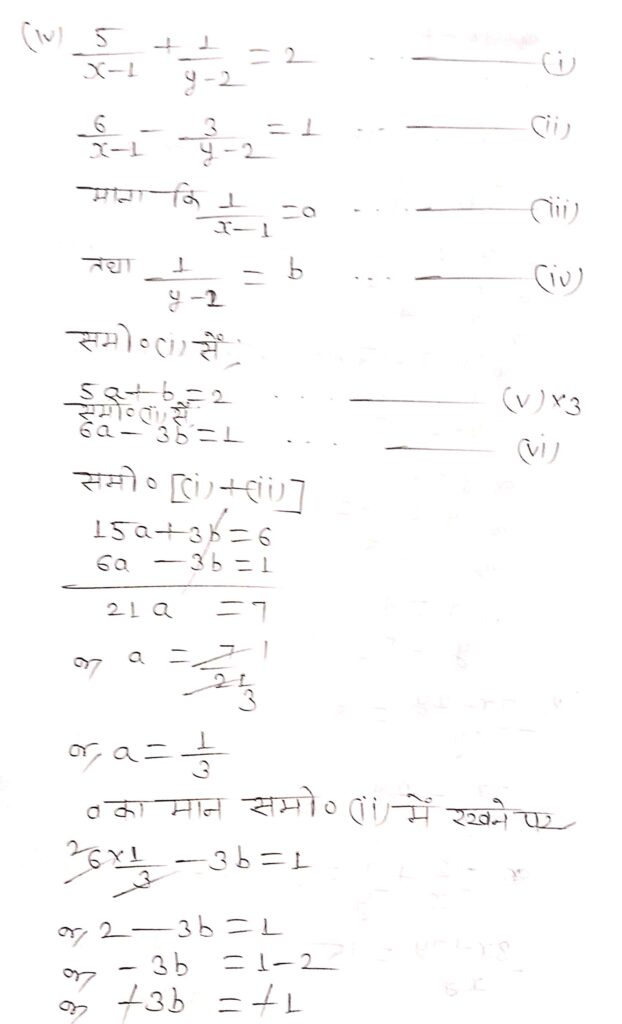 (iv) 5/(x-1) + 1/(y-2) = 2 ... ——— (i)
6/(x-1) - 3/(y-2) = 1 ... ——— (ii)
माना कि 1/(x-1) = a ... ——— (iii)
तथा 1/(y-2) = b ... ——— (iv)
समी०(i) सें;
5a+b=2 ... ——— (v)×3
समी०(ii) सें
6a-3b=1 ... ——— (vi)
समी०[(i)+(ii)]
15a+3b=6
6a -3b=1
21a = 7
or, a = 7/21 1 3
or, a = 1/3
a का मान समी० (ii) में रखने पर
2 6×1/3 - 3b = 1
or, 2 - 3b = 1
or, - 3b = 1-2
or, +3b = +1